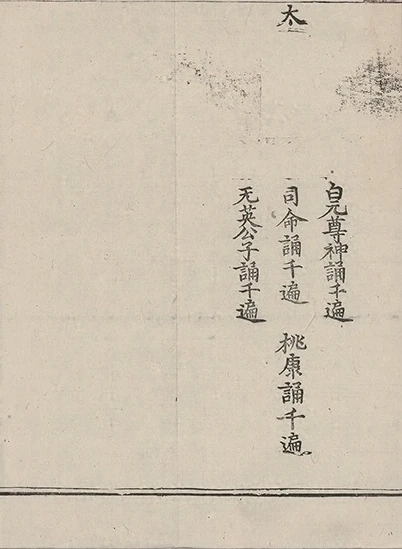 太
白元尊神誦千遍
司命誦千遍 桃康誦千遍
无英公子誦千遍